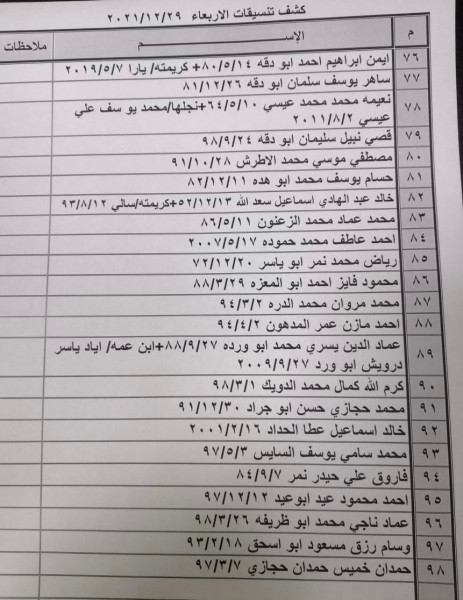 كشف تنسيقات الاربعاء ٢٠٢١/١٢/٢٩
م الإســـــم ملاحظات
٧٦ ايمن ابراهيم احمد ابو دقه ٨٠/٥/١٤+ كريمته/ يارا ٢٠١٩/٥/٧
٧٧ ساهر يوسف سلمان ابو دقه ٨١/١٢/٢٦
٧٨ نعيمه محمد محمد عيسي ٦٤/٥/١٠+نجلها/محمد يو سف علي
عيسي ٢٠١١/٨/٢
٧٩ قصي نبيل سليمان ابو دقه ٩٨/٩/٢٤
٨٠ مصطفي موسي محمد الاطرش ٩١/١٠/٢٨
٨١ حسام يوسف محمد ابو هده ٨٢/١٢/١١
٨٢ خالد عبد الهادي اسماعيل سعد الله ٥٢/١٢/١٣+كريمته/سالي ٩٣/٨/١٢
٨٣ محمد عماد محمد الزعنون ٨٦/٥/١١
٨٤ احمد عاطف محمد حموده ٢٠٠٧/٥/١٧
٨٥ رياض محمد نمر ابو ياسر ٧٢/١٢/٢٠
٨٦ محمود فايز احمد ابو المعزه ٨٨/٣/٢٩
٨٧ محمد مروان محمد الدره ٩٤/٣/٢
٨٨ احمد مازن عمر المدهون ٩٤/٤/٢
٨٩ عماد الدين يسري محمد ابو ورده ٨٨/٩/٢٧+ابن عمه/ اياد ياسر
درويش ابو ورد ٢٠٠٩/٩/٢٧
٩٠ كرم الله كمال محمد الدويك ٩٨/٣/١
٩١ محمد حجازي حسن ابو جراد ٩١/١٢/٣٠
٩٢ خالد اسماعيل عطا الحداد ٢٠٠١/٢/١٦
٩٣ محمد سامي يوسف السايس ٩٧/٥/٣
٩٤ فاروق علي حيدر نمر ٨٤/٩/٧
٩٥ احمد محمود عيد ابوعيد ٩٧/١٢/١٢
٩٦ عماد ناجي محمد ابو ظريفه ٩٨/٣/٢٦
٩٧ وسام رزق مسعود ابو اسحق ٩٣/٢/١٨
٩٨ حمدان خميس حمدان حجازي ٩٧/٣/٧